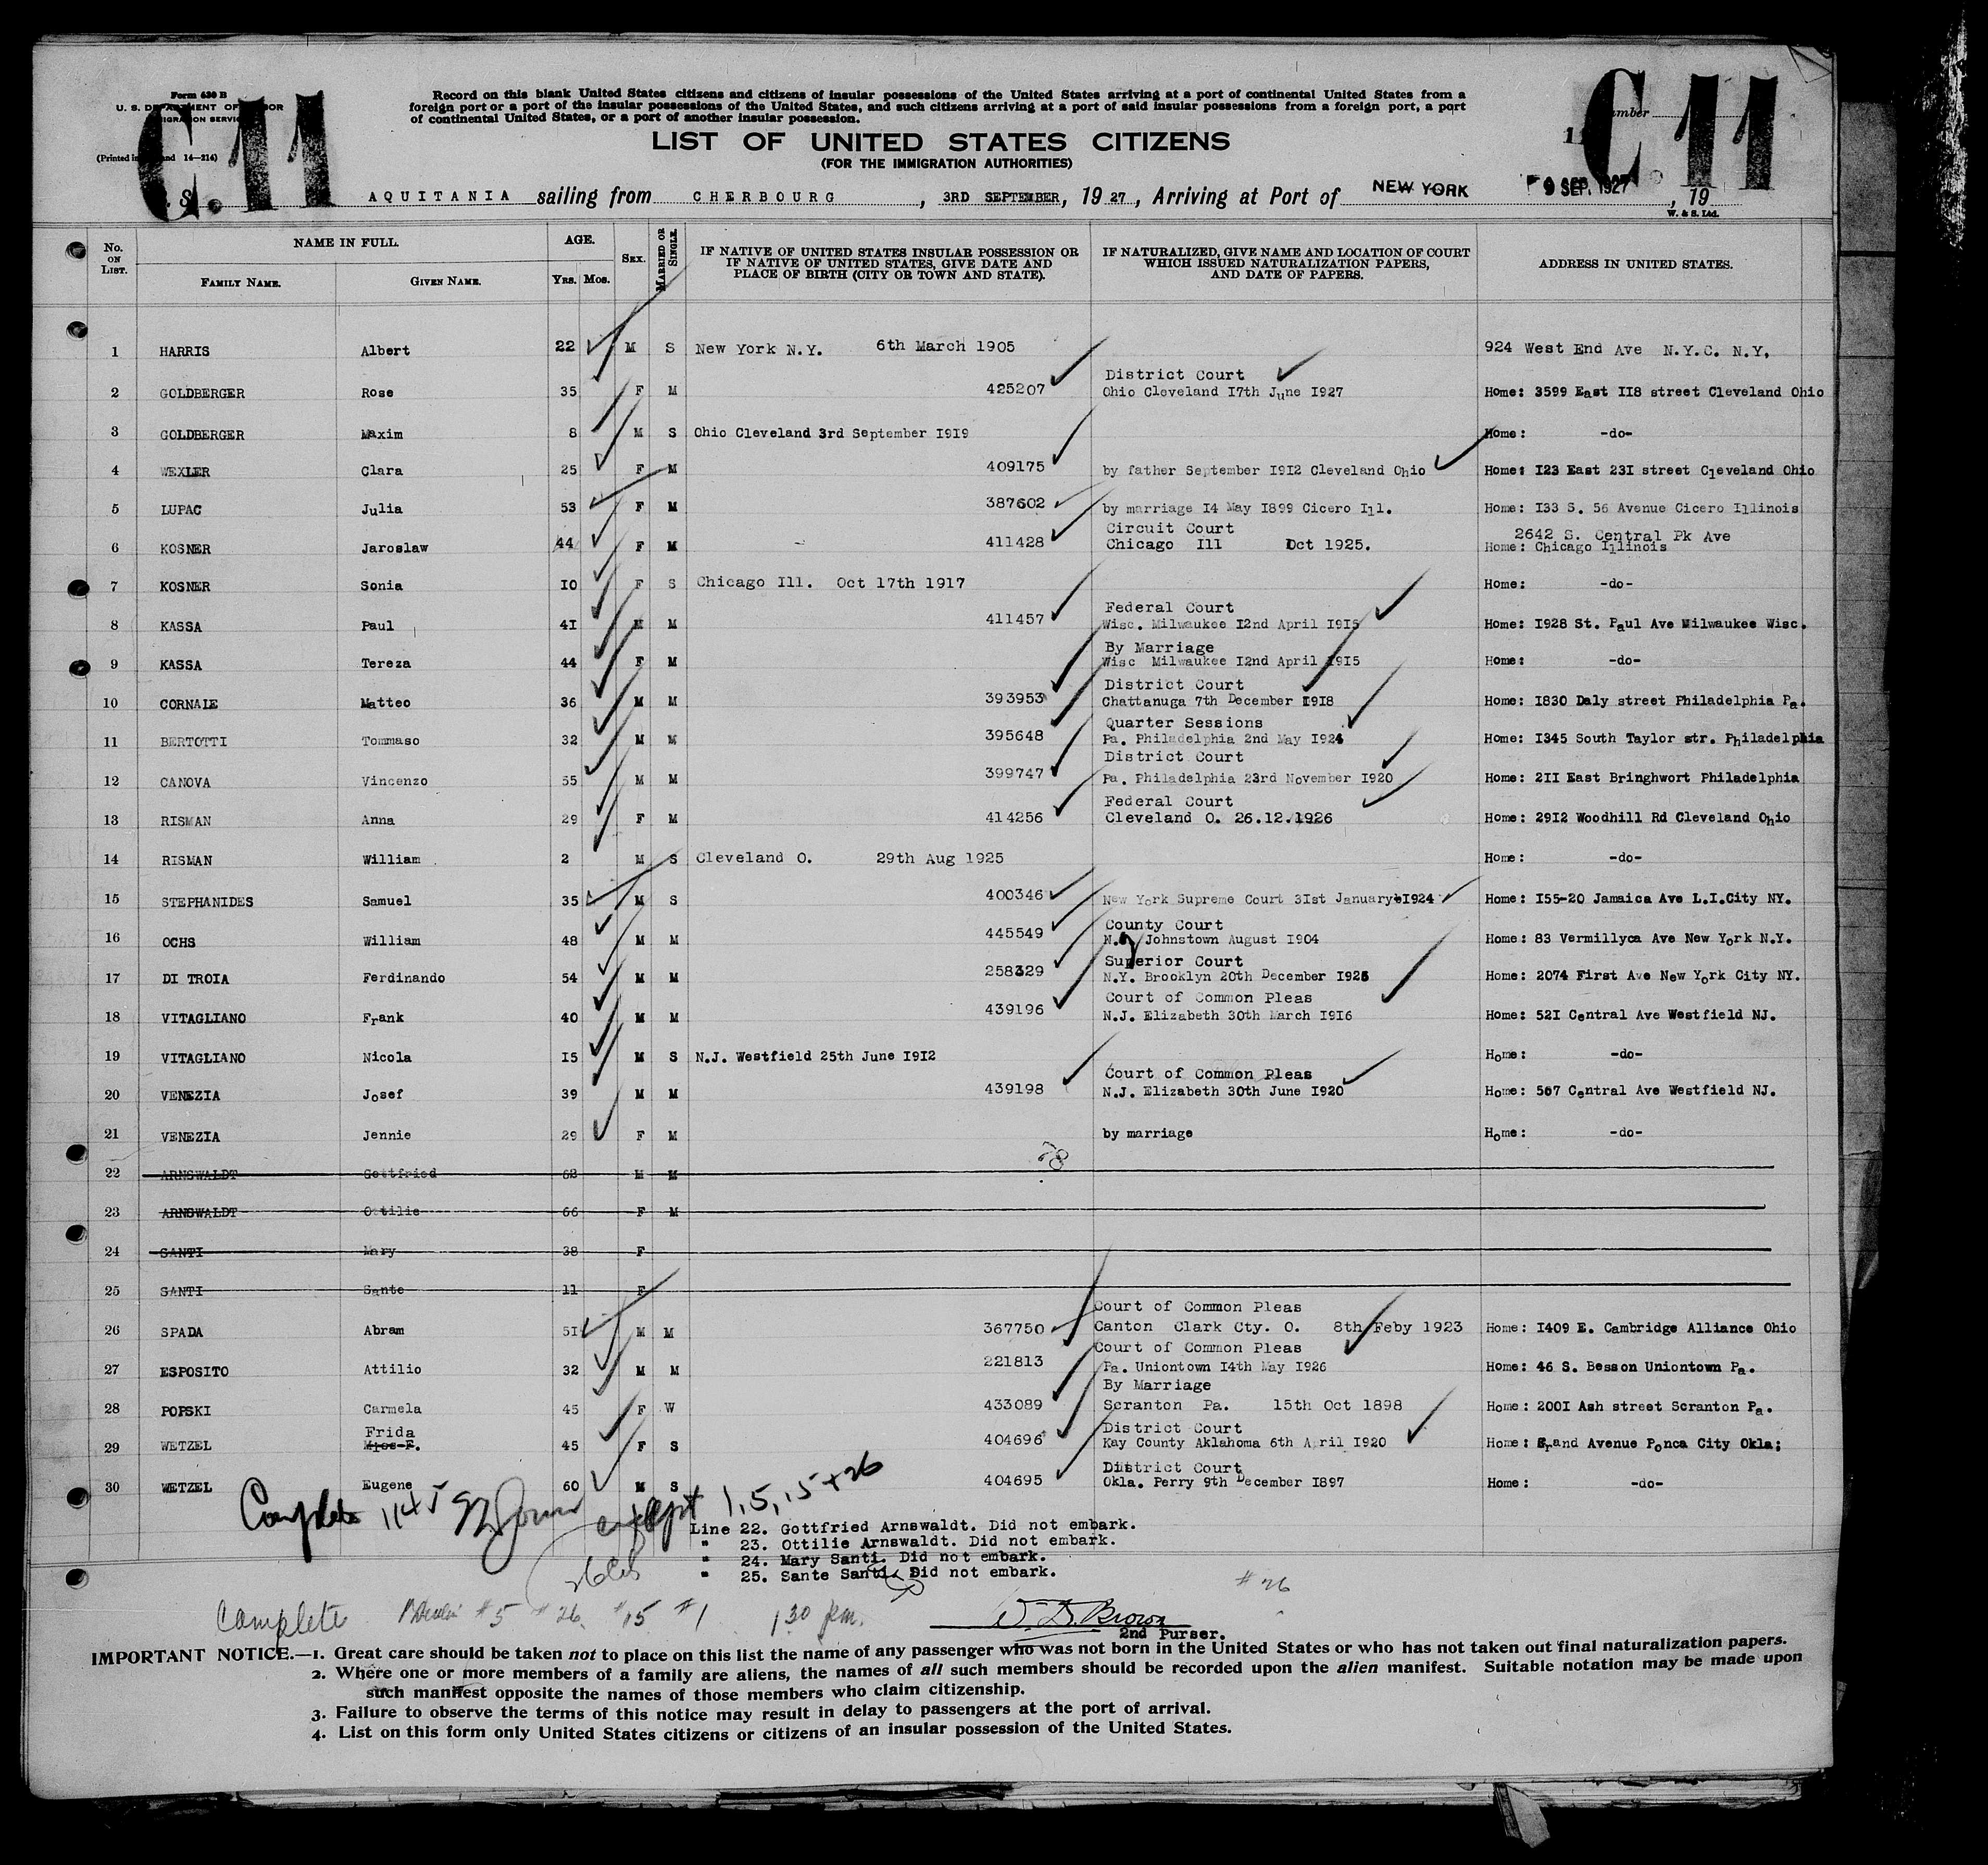 C.11
Form 630 B
Record on this blank United States citizens and citizens of insular possessions of the United States arriving at a port of continental United States from a
foreign port or a port of the insular possessions of the United States, and such citizens arriving at a port of said insular possessions from a foreign port, a port
of continental United States, or a port of another insular possession.
C 11
LIST OF UNITED STATES CITIZENS
(FOR THE IMMIGRATION AUTHORITIES)
AQUITANIA sailing from CHERBOURG, 3RD SEPTEMBER, 1927, Arriving at Port of NEW YORK 9 SEP. 1927, 19
W. & S. Ltd.
No. ON LIST. NAME IN FULL. FAMILY NAME. GIVEN NAME. AGE. YRS. MOS. SEX. MARRIED OR SINGLE. IF NATIVE OF UNITED STATES INSULAR POSSESSION OR IF NATIVE OF UNITED STATES, GIVE DATE AND PLACE OF BIRTH (CITY OR TOWN AND STATE). IF NATURALIZED, GIVE NAME AND LOCATION OF COURT WHICH ISSUED NATURALIZATION PAPERS, AND DATE OF PAPERS. ADDRESS IN UNITED STATES.
1 HARRIS Albert 22 M S New York N.Y. 6th March 1905 924 West End Ave N.Y.C. N.Y.
2 GOLDBERGER Rose 35 F M 425207 District Court Ohio Cleveland I7th June I927 Home: 3599 East II8 street Cleveland Ohio
3 GOLDBERGER Maxim 8 M S Ohio Cleveland 3rd September I9I9 Home: -do-
4 WEXLER Clara 25 F M 409175 by father September I9I2 Cleveland Ohio Home: I23 East 23I street Cleveland Ohio
5 LUPAC Julia 53 F M 387602 by marriage I4 May I899 Cicero Ill. Home: I33 S. 56 Avenue Cicero Illinois
6 KOSNER Jaroslaw 44 F M 411428 Circuit Court Chicago Ill Oct 1925. 2642 S. Central Pk Ave Home: Chicago Illinois
7 KOSNER Sonia IO F S Chicago Ill. Oct 17th 1917 Home: -do-
8 KASSA Paul 4I M M 411457 Federal Court Wisc. Milwaukee I2nd April I915 Home: I928 St. Paul Ave Milwaukee Wisc.
9 KASSA Tereza 44 F M By Marriage Wisc Milwaukee I2nd April I9I5 Home: -do-
10 CORNALE Matteo 36 M M 393953 District Court Chattanuga 7th December I9I8 Home: I830 Daly street Philadelphia Pa.
11 BERTOTTI Tommaso 32 M M 395648 Quarter Sessions Pa. Philadelphia 2nd May I924 Home: I345 South Taylor str. Philadelphia
12 CANOVA Vincenzo 55 M M 399747 District Court Pa. Philadelphia 23rd November I920 Home: 2II East Bringhwort Philadelphia
13 RISMAN Anna 29 F M 414256 Federal Court Cleveland O. 26.12.1926 Home: 29I2 Woodhill Rd Cleveland Ohio
14 RISMAN William 2 M S Cleveland O. 29th Aug 1925 Home: -do-
15 STEPHANIDES Samuel 35 M S 400346 New York Supreme Court 3Ist January I924 Home: I55-20 Jamaica Ave L.I.City NY.
16 OCHS William 48 M M 445549 County Court N.Y Johnstown August I904 Home: 83 Vermillyca Ave New York N.Y.
17 DI TROIA Ferdinando 54 M M 258329 Superior Court N.Y. Brooklyn 20th December I925 Home: 2074 First Ave New York City NY.
18 VITAGLIANO Frank 40 M M 439196 Court of Common Pleas N.J. Elizabeth 30th March I9I6 Home: 52I Central Ave Westfield NJ.
19 VITAGLIANO Nicola I5 M S N.J. Westfield 25th June I9I2 Home: -do-
20 VENEZIA Josef 39 M M 439198 Court of Common Pleas N.J. Elizabeth 30th June I920 Home: 567 Central Ave Westfield NJ.
21 VENEZIA Jennie 29 F M by marriage Home: -do-
22 ARNSWALDT Gottfried 68 M M
23 ARNSWALDT Ottilie 66 F M
24 SANTI Mary 38 F
25 SANTI Sante 11 F
26 SPADA Abram 5I M M 367750 Court of Common Pleas Canton Clark Cty. O. 8th Feby 1923 Home: I409 E. Cambridge Alliance Ohio
27 ESPOSITO Attilio 32 M M 221813 Court of Common Pleas Pa. Uniontown I4th May I926 Home: 46 S. Besson Uniontown Pa.
28 POPSKI Carmela 45 F W 433089 By Marriage Scranton Pa. 15th Oct 1898 Home: 200I Ash street Scranton Pa.
29 WETZEL Frida Miss F. 45 F S 404696 District Court Kay County Aklahoma 6th April I920 Home: Grand Avenue Ponca City Okla;
30 WETZEL Eugene 60 M S 404695 District Court Okla. Perry 9th December I897 Home: -do-
Complete 1145 except 1, 5, 15 + 26
Line 22. Gottfried Arnswaldt. Did not embark.
" 23. Ottilie Arnswaldt. Did not embark.
" 24. Mary Santi. Did not embark.
" 25. Sante Santi. Did not embark.
# 26
Complete #5 #26 #15 #1 1 30 pm.
W. D. Brown
2nd Purser.
IMPORTANT NOTICE.—1. Great care should be taken not to place on this list the name of any passenger who was not born in the United States or who has not taken out final naturalization papers.
2. Where one or more members of a family are aliens, the names of all such members should be recorded upon the alien manifest. Suitable notation may be made upon
such manifest opposite the names of those members who claim citizenship.
3. Failure to observe the terms of this notice may result in delay to passengers at the port of arrival.
4. List on this form only United States citizens or citizens of an insular possession of the United States.